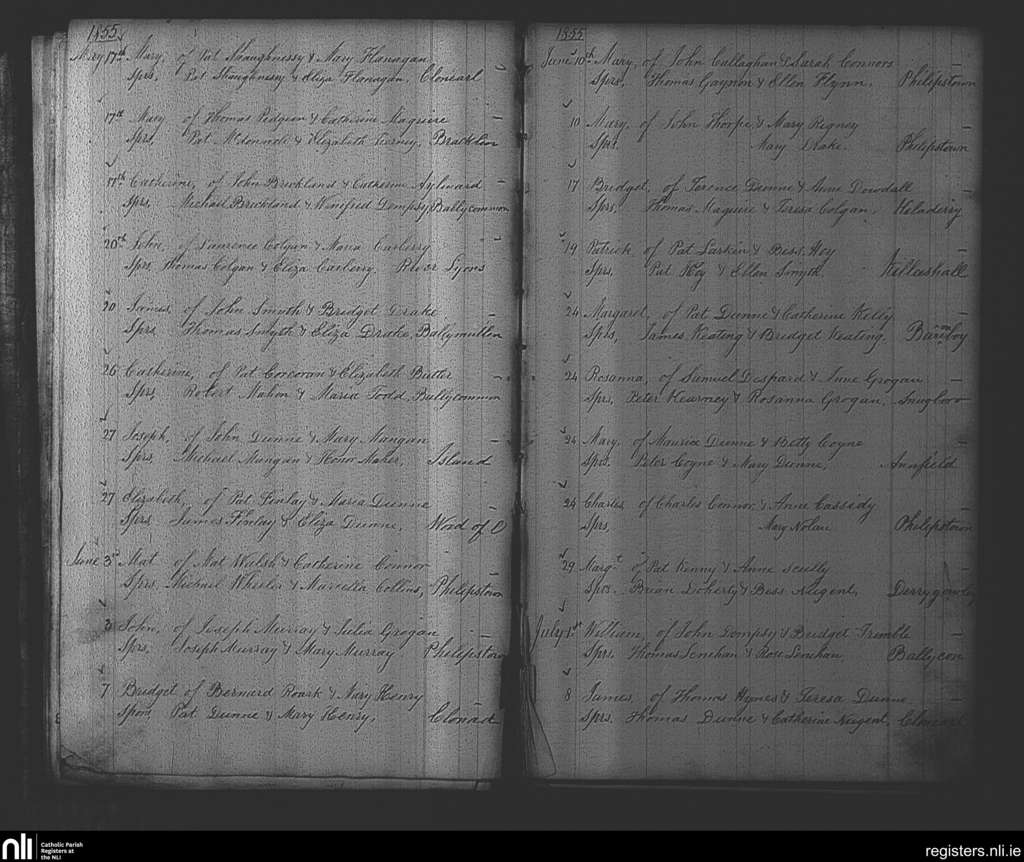 1855
May 17th Mary, of Pat Shaughnessy & Mary Flanagan
Sprs, Pat Shaughnessy & Eliza Flanagan, Clonearl
17th Mary of Thomas Pidgeon & Catherine Maguire
Sprs, Pat & Elizabeth Tierney, Bracklin
17th Catherine, of John Brickland & Catherine Aylward
Sprs, Michael Brickland & Winifred Dempsy, Ballycommon
20th John, of Laurence Colgan & Maria Carberry
Sprs, Thomas Colgan & Eliza Carberry, River Lyons
20 James of John Smyth & Bridget Drake
Sprs Thomas Smyth & Eliza Drake, Ballymullen
26 Catherine, of Pat Corcoran & Elizabeth Butter
Sprs, Robert Mahon & Maria Todd, Ballycommon
27 Joseph, of John Dunne & Mary Mangan
Sprs, Michael Mangan & Honor Maher, Island
27 Elizabeth, of Pat Finlay & Maria Dunne
Sprs James Finlay & Eliza Dunne, Wood of O
June 3rd Mat of Mat Walsh & Catherine Connor
Sprs, Michael Wheeler & Marcella Collins, Philipstown
3 John, of Joseph Murray & Julia Grogan
Sprs, Joseph Murray & Mary Murray Philipstown
7 Bridget of Bernard Roark & Mary Henry
Spon, Pat Dunne & Mary Henry, Clonad
1855
June 10th Mary, of John Callaghan & Sarah Connors
Sprs, Thomas Gaynon & Ellen Flynn, Philipstown
10 Mary, of John Thorpe & Mary Rigney
Sprs. Mary Drake. Philipstown
17 Bridget, of Terence Dunne & Anne Dowdall
Sprs, Thomas Maguire & Teresa Colgan,
19 Patrick of Pat Larkin & Bess Hoy
Sprs, Pat Hoy & Ellen Smyth
24 Margaret, of Pat Dunne & Catherine Kelly
Sprs, James Keating & Bridget Keating,
24 Rosanna, of Samuel Despard & Anne Grogan
Sprs, Peter Kearney & Rosanna Grogan, Snugboro
24 Mary, of Maurice Dunne & Betty Coyne
Sprs. Peter Coyne & Mary Dunne, Annfield
24 Charles of Charles Connor & Anne Cassidy
Sprs, Mary Nolan Philipstown
29 Margt of Pat Kenny & Anne Scully
Spos. Brian Doherty & Bess Nugent, Derrygowley
July 1st William, of John Dempsy & Bridget Trimble
Sprs. Thomas Lenehan & Rose Lenehan, Ballycon
8 James, of Thomas Hynes & Teresa Dunne
Sprs. Thomas Dunne & Catherine Nugent, Clonearl
nli Catholic Parish
Registers at
the NLI
registers.nli.ie